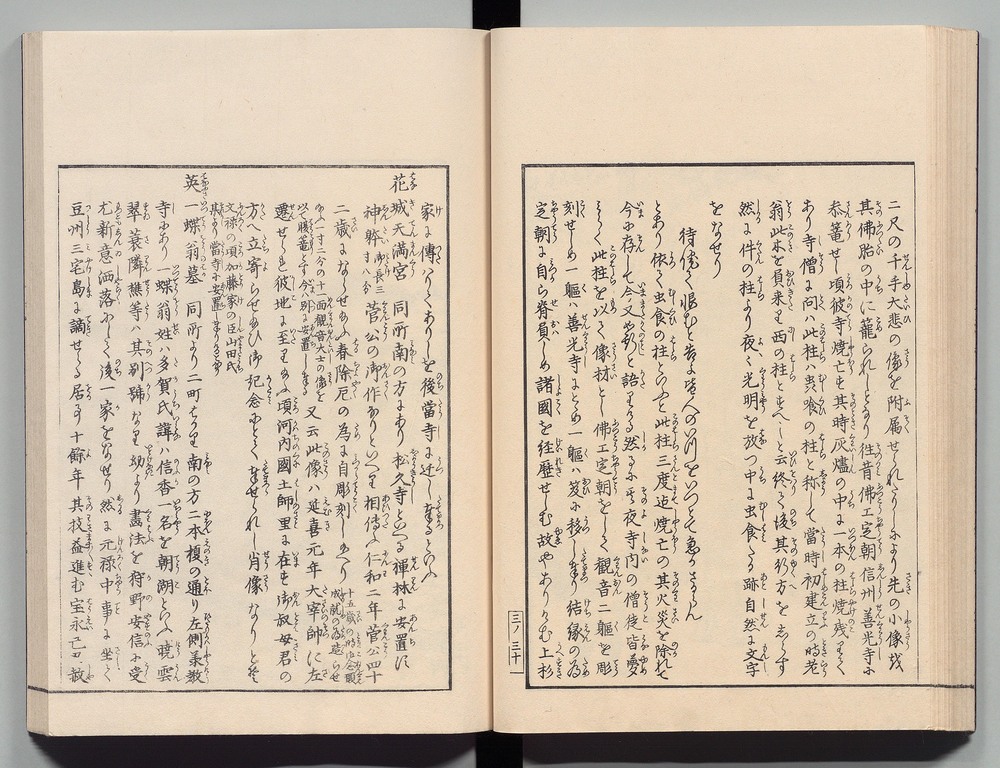 二尺の千手大悲の像を附属せられたりしより先の小像我
其佛胎の中に籠られしとなり往昔佛工定朝信州善光寺に
恭篭せし頃彼寺焼亡す其時灰燼の中に一本の柱焼残りて
あり寺僧に問ハ此柱ハ虫喰の柱と称して當時初建立の時老
翁此木を負来り西の柱とすへしと云終て後其行方をしらす
然るに件の柱より夜々光明を放つ中に虫食たる跡自然に文字
をなせり
待侘て恨むと告よ皆人へいつをいつとて急かさるらん
とあり依て虫食の柱といふと此柱三度迄焼亡の其火災を除れて
今に存して今又如斯と語りける然るに其夜寺内の僧徒皆夢
らく此柱を以て像材とし佛工定朝をして觀音二軀を彫
刻せしめ一軀ハ善光寺にとゝめ一軀ハ笈に移し奉り結縁の為
定朝に自ら脊負しめ諸國を経歴せしむ故やありけむ上杉
三ノ三十
家に傳ハりてありしを後當寺に迁し奉るといふ
花城天満宮 同所南の方にあり松久寺といへる禅林に安置に
神躰 御長三寸八分 菅公の御作なりといへり相傳ふ仁和二年菅公四十
二歳にならせ給ふ春除厄の為に自彫刻し給へり 十五歳の時は念願成就の為造らせ
給ふ一寸二分の十一面觀音大士の像を以て腹篭とす今ハ別に安置し奉る 又云此像ハ延喜元年大宰帥に左
遷せられ彼地に至り給ふ頃河内國土師里に在す御叔母君の
方へ立寄らせ給ひ御記念にとて奉せられし肖像なりと其
文禄の頃加藤家の臣山田氏
故ありて當寺に安置しまゐらすとなり
英一蝶翁墓 同所より二町はかり南の方二本榎の通り左側承教
寺にあり一蝶翁姓ハ多賀氏諱ハ信香一名を朝湖といふ 暁雲
翠蓑隣樵等ハ其別號なり幼より畫法を狩野安信に受
尤新意洒落にして後一家をなせり然るに元禄中事に坐して
豆州三宅島に謫せらる居事十餘年其技益進む宝永己丑赦